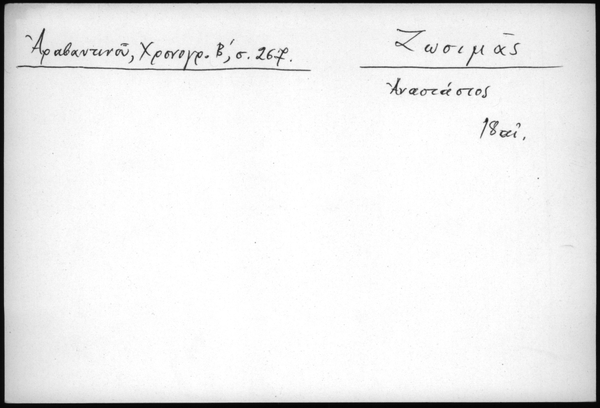 Ἀραβαντινοῦ, Χρονογρ. Β΄, σ. 267.
Ζωσιμᾶς
Ἀναστάσιος
18 αἰ.